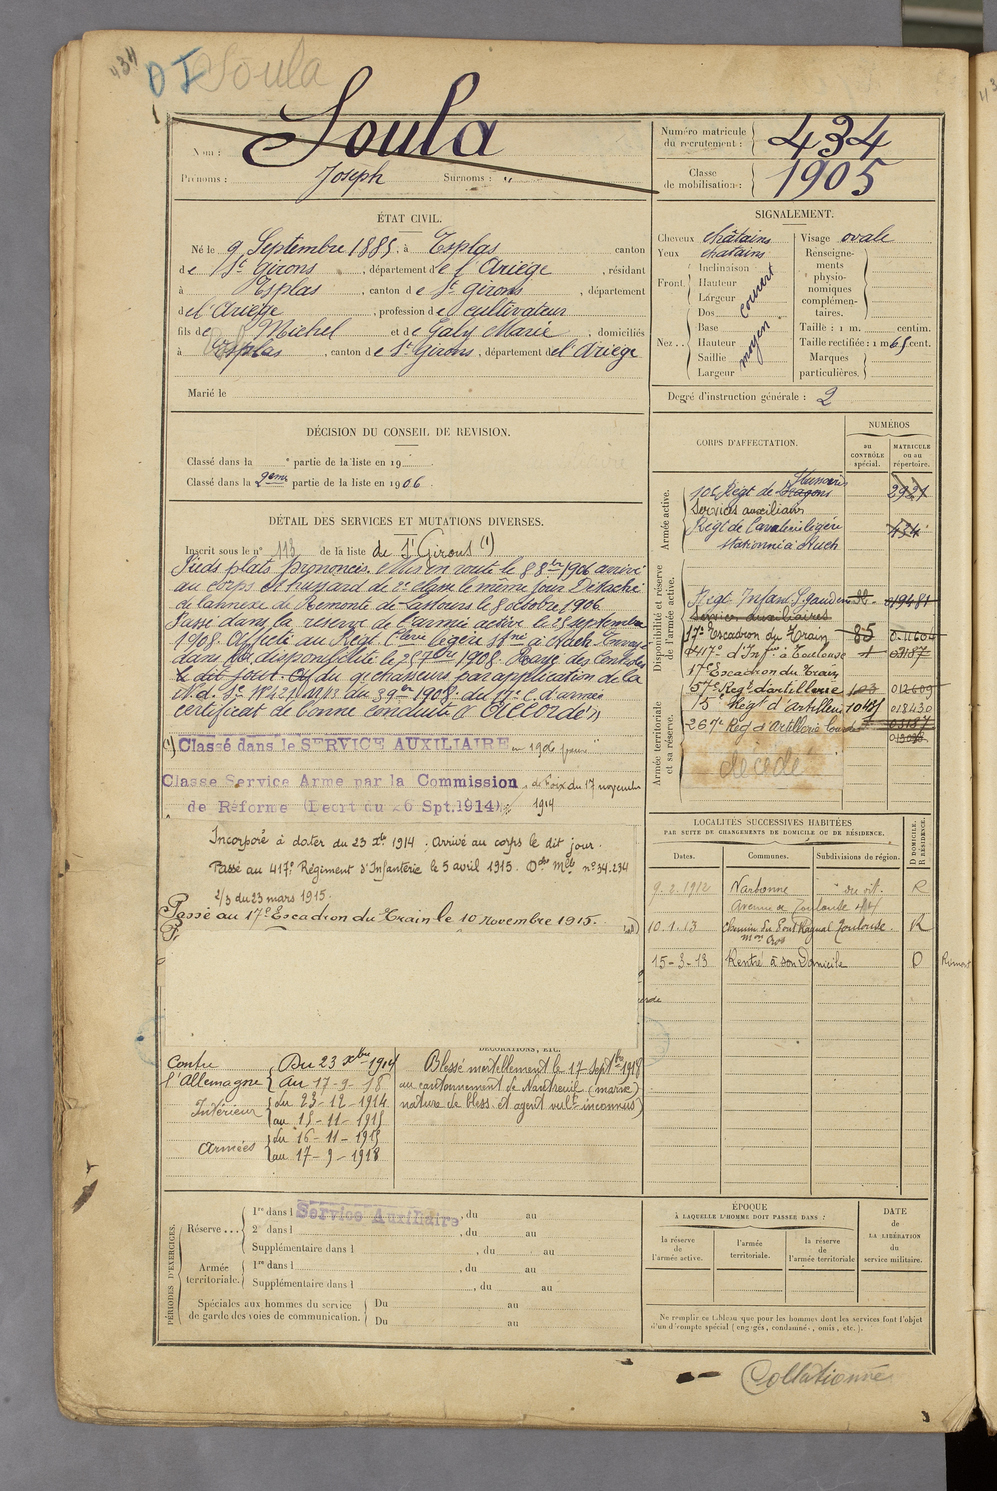 434
DI Soula
Nom : Soula
Prénoms : Joseph Surnoms : "
Numéro matricule du recrutement : 434
Classe de mobilisation : 1905
ÉTAT CIVIL.
Né le 9 Septembre 1885, à Esplas canton
de St Girons, département de l'Ariège, résidant
à Esplas, canton de St Girons, département
de l'Ariège, profession de cultivateur
fils de Michel et de Galy Marie, domiciliés
à Esplas, canton de St Girons, département de l'Ariège
Marié le
SIGNALEMENT.
Cheveux châtains
Yeux chatains
Front. Inclinaison Hauteur Largeur couvert
Nez.. Dos Base Hauteur Saillie Largeur moyen
Visage ovale
Renseignements physionomiques complémentaires.
Taille : 1 m. centim.
Taille rectifiée : 1 m 65 cent.
Marques particulières.
Degré d'instruction générale : 2
DÉCISION DU CONSEIL DE REVISION.
Classé dans la " partie de la liste en 19
Classé dans la 2eme partie de la liste en 1906
DÉTAIL DES SERVICES ET MUTATIONS DIVERSES.
Inscrit sous le n° 113 de la liste du St Girons (1)
Pieds plats prononcés. Mis en route le 8 8bre 1906 arrivé
au corps et hussard de 2e classe le même jour Détaché
à l'annexe de Remonte de Lastours le 8 octobre 1906
Passé dans la réserve de l'armée active le 25 septembre
1908. Affecté au Régt. Clerie légère à Auch
dans la disponibilité le 25 7bre 1908. Rayé des Contrôles
le dit jour. du 9e chasseurs par application de la
certificat de bonne conduite "Accordé"
(1) Classé dans le SERVICE AUXILIAIRE en 1906
Classe Service Armé par la Commission de Foix du 17 novembre
de Réforme (Décrt du 26 Spt.1914) 1914
Incorporé à dater du 23 Xbre 1914. Arrivé au corps le dit jour.
Passé au 417e Régiment d'Infanterie le 5 avril 1915. Don Mlle n° 34.234
2/3 du 23 mars 1915.
Passé au 17e Escadron du Train le 10 novembre 1915.
CORPS D'AFFECTATION.
NUMÉROS
au CONTRÔLE spécial.
MATRICULE ou au répertoire.
Armée active.
10e Régt de Dragons Hussards 2921
Services auxiliaires
Régt de Cavalerie légère 434
stationné à Auch
Disponibilité et réserve de l'armée active.
Régt Infant. St Gaudens
Services auxiliaires
17e Escadron du Train 85 0.11604
417e d'Infie à Toulouse 1 03187
17e Escadron du Train
57e Régt d'artillerie 103 012609
Armée territoriale et sa réserve.
15e Régt d'Artillerie 1045 018430
267e Rég d'Artillerie Lourde 03187
décédé
LOCALITÉS SUCCESSIVES HABITÉES
PAR SUITE DE CHANGEMENTS DE DOMICILE OU DE RÉSIDENCE.
Dates. Communes. Subdivisions de région. D DOMICILE. R RÉSIDENCE.
9.2.1912 Narbonne R
Avenue de Toulouse
10.1.13 Chemin du Pont Raynal Toulouse. R
15-3-13 Rentré à son Domicile D
DÉCORATIONS, ETC.
Contre l'Allemagne Du 23 Xbre 1914
au 17-9-18
Intérieur du 23-12-1914
au 15-11-1915
Armées du 16-11-1915
au 17-9-1918
Blessé mortellement le 17 Septbre 1918
au cantonnement de Nanteuil (marne)
nature de bless. et agent vult inconnus)
PÉRIODES D'EXERCICES.
Réserve... 1re dans l Service Auxiliaire, du au
2e dans l , du au
Supplémentaire dans l , du au
Armée territoriale. 1re dans l , du au
Supplémentaire dans l , du au
Spéciales aux hommes du service de garde des voies de communication. Du au
Du au
ÉPOQUE
À LAQUELLE L'HOMME DOIT PASSER DANS :
la réserve de l'armée active.
l'armée territoriale.
la réserve de l'armée territoriale
DATE de LA LIBÉRATION du service militaire.
Ne remplir ce tableau que pour les hommes dont les services font l'objet
d'un décompte spécial (engagés, condamnés, omis, etc.).
Collationné